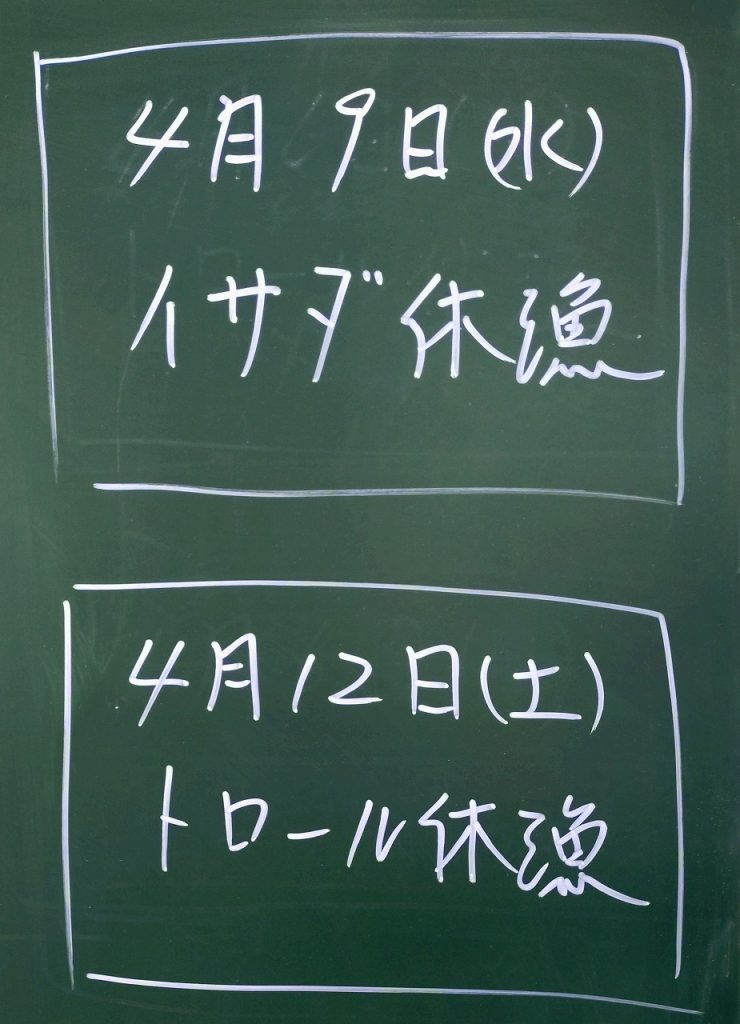 4月9日(水)
イサダ休漁
4月12日(土)
トロール休漁